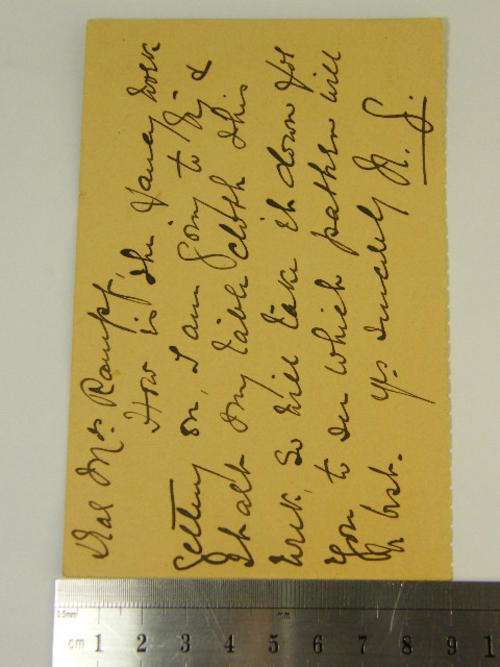 Dear Mrs Rampf,
How is the Fancy work
getting on, I am going to
& shall my table cloth this
week, so will take it down for
you to see which pattern will
be best. Yrs sincerely R. G.
0.5mm
cm 1 2 3 4 5 6 7 8 9 1